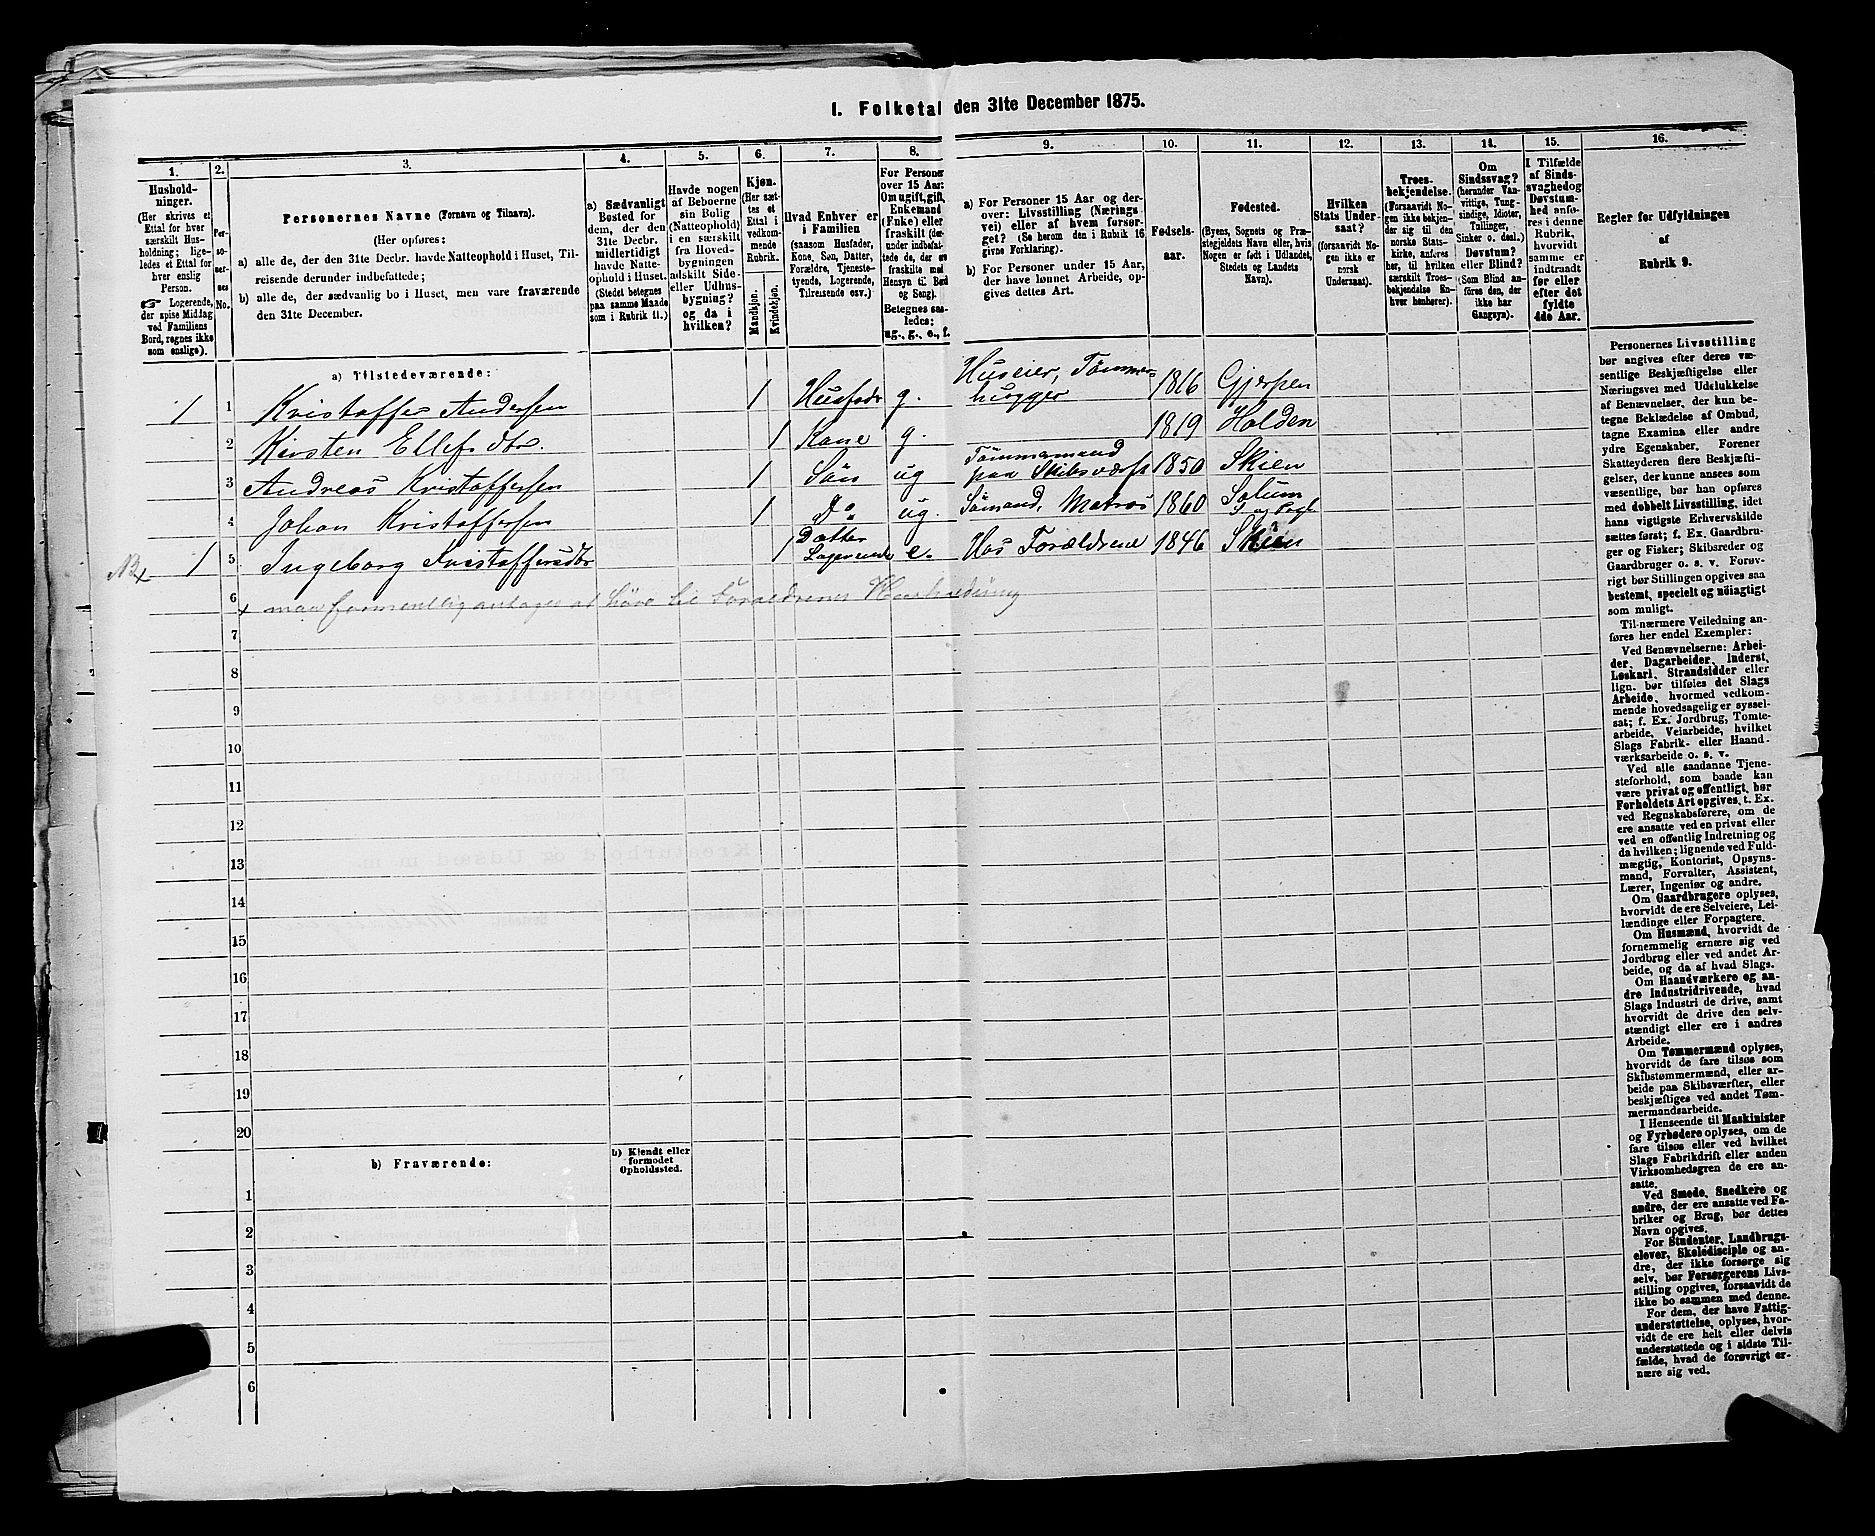 I. Folketal den 31te December 1875.
1. 2. 3. 4. 5. 6. 7. 8. 9. 10. 11. 12. 13. 14. 15. 16.
Hushold-
ninger.
(Her skrives et
Ettal for hver
særskilt Hus-
holdning; lige-
ledes et Ettal for
hver enslig
Person.
☞ Logerende,
der spise Middag
ved Familiens
Bord, regnes ikke
som enslige).
Per-
so-
ner-
nes
No.
Personernes Navne (Fornavn og Tilnavn).
(Her opføres:
a) alle de, der den 31te Decbr. havde Natteophold i Huset, Til-
reisende derunder indbefattede;
b) alle de, der sædvanlig bo i Huset, men vare fraværende
den 31te December.
a) Sædvanligt
Bosted for
dem, der den
31te Decbr.
midlertidigt
havde Natte-
ophold i Huset.
(Stedet betegnes
paa samme Maade
som i Rubrik 11.)
Havde nogen
af Beboerne
sin Bolig
(Natteophold)
i en særskilt
fra Hoved-
bygningen
adskilt Side-
eller Udhus-
bygning?
og da i
hvilken?
Kjøn.
(Her sæt-
tes et
Ettal i
vedkom-
mende
Rubrik.
Mandkjøn.
Kvindekjøn.
Hvad Enhver er
i Familien
(saasom Husfader,
Kone, Søn, Datter,
Forældre, Tjeneste-
tyende, Logerende,
Tilreisende osv.)
For Personer
over 15 Aar:
Om ugift, gift,
Enkemand
(Enke) eller
fraskilt (der-
under indbefat-
tede de, der ere
fraskilte med
Hensyn til Bord
og Seng).
Betegnes saa-
ledes:
ug., g., e., f.
a) For Personer 15 Aar og der-
over: Livsstilling (Nærings-
vei) eller af hvem forsør-
get? (Se herom den i Rubrik 16
givne Forklaring).
b) For Personer under 15 Aar,
der have lønnet Arbeide, op-
gives dettes Art.
Fødsels-
aar.
Fødested.
(Byens, Sognets og Præ-
stegjeldets Navn eller, hvis
Nogen er født i Udlandet,
Stedets og Landets
Navn).
Hvilken
Stats Under-
saat?
(forsaavidt No-
gen ikke er
norsk
Undersaat).
Troes-
bekjendelse.
(Forsaavidt No-
gen ikke bekjen-
der sig til den
norske Stats-
kirke, anføres
her, til hvilken
særskilt Troes-
bekjendelse En-
hver henhører).
Om
Sindssvag?
(herunder Van-
vittige, Tung-
sindige, Idioter,
Tullinger,
Sinker o. desl.)
Døvstum?
eller Blind?
(Som Blind an-
føres den, der
ikke har
Gangsyn).
I Tilfælde
af Sinds-
svaghed og
Døvstum-
hed anfø-
res i denne
Rubrik,
hvorvidt
samme er
indtraadt
før eller
efter det
fyldte
4de Aar.
Regler for Udfyldningen
af
Rubrik 9.
a) Tilstedeværende:
1 1 Kristoffer Andersen 1 Husfadr g. Huseier, Tømmer-
hugger 1816 Gjerpen
2 Kirsten Ellefsdtr. 1 Kone g. 1819 Holden
3 Andreas Kristoffersen 1 Søn ug Tømmermand
paa Skibsværft 1850 Skien
4 Johan Kristoffersen 1 Do ug. Sømand, Matros 1860 Solum
S. og Pregl
Nb x 1 5 Ingeborg Kristoffersdtr 1 Datter
Logerende e. Hos Forældrene 1846 Skien
6 x maa formentlig antages at høre til Forældrenes Husholdning
7
8
9
10
11
12
13
14
15
16
17
18
19
20
b) Fraværende:
b) Kjendt eller
formodet
Opholdssted.
1
2
3
4
5
6
Personernes Livsstilling
bør angives efter deres væ-
sentlige Beskjæftigelse eller
Næringsvei med Udelukkelse
af Benævnelser, der kun be-
tegne Beklædelse af Ombud,
tagne Examina eller andre
ydre Egenskaber. Forener
Skatteyderen flere Beskjæfti-
gelser, der kunne ansees som
væsentlige, bør han opføres
med dobbelt Livsstilling, idet
hans vigtigste Erhvervskilde
sættes først; f. Ex. Gaardbru-
ger og Fisker; Skibsreder og
Gaardbruger o. s. v. Forøv-
rigt bør Stillingen opgives saa
bestemt, specielt og nøiagtigt
som muligt.
Til nærmere Veiledning an-
føres her endel Exempler:
Ved Benævnelserne: Arbei-
der, Dagarbeider, Inderst,
Løskarl, Strandsidder eller
lign. bør tilføies det Slags
Arbeide, hvormed vedkom-
mende hovedsagelig er syssel-
sat; f. Ex. Jordbrug, Tomte-
arbeide, Veiarbeide, hvilket
Slags Fabrik- eller Haand-
værksarbeide o. s. v.
Ved alle saadanne Tjene-
steforhold, som baade kan
være privat og offentligt, bør
Forholdets Art opgives, t. Ex.
ved Regnskabsførere, om de
ere ansatte ved en privat eller
ved en offentlig Indretning og
da hvilken; lignende ved Fuld-
mægtig, Kontorist, Opsyns-
mand, Forvalter, Assistent,
Lærer, Ingeniør og andre.
Om Gaardbrugere oplyses,
hvorvidt de ere Selveiere, Lei-
lændinge eller Forpagtere.
Om Husmænd, hvorvidt de
fornemmelig ernære sig ved
Jordbrug eller ved andet Ar-
beide, og da af hvad Slags.
Om Haandværkere og an-
dre Industridrivende, hvad
Slags Industri de drive, samt
hvorvidt de drive den selv-
stændigt eller ere i andres
Arbeide.
Om Tømmermænd oplyses,
hvorvidt de fare tilsøs som
Skibstømmermænd, eller ar-
beide paa Skibsværfter, eller
beskjæftiges ved andet Tøm-
mermandsarbeide.
I Henseende til Maskinister
og Fyrbødere oplyses, om de
fare tilsøs eller ved hvilket
Slags Fabrikdrift eller anden
Virksomhedsgren de ere an-
satte.
Ved Smede, Snedkere og
andre, der ere ansatte ved Fa-
briker og Brug, bør dettes
Navn opgives.
For Studenter, Landbrugs-
elever, Skoledisciple og an-
dre, der ikke forsørge sig
selv, bør Forsørgerens Livs-
stilling opgives, forsaavidt de
ikke bo sammen med denne.
For dem, der have Fattig-
understøttelse, oplyses, hvor-
vidt de ere helt eller delvis
understøttede og i sidste Til-
fælde, hvad de forøvrigt er-
nære sig ved.